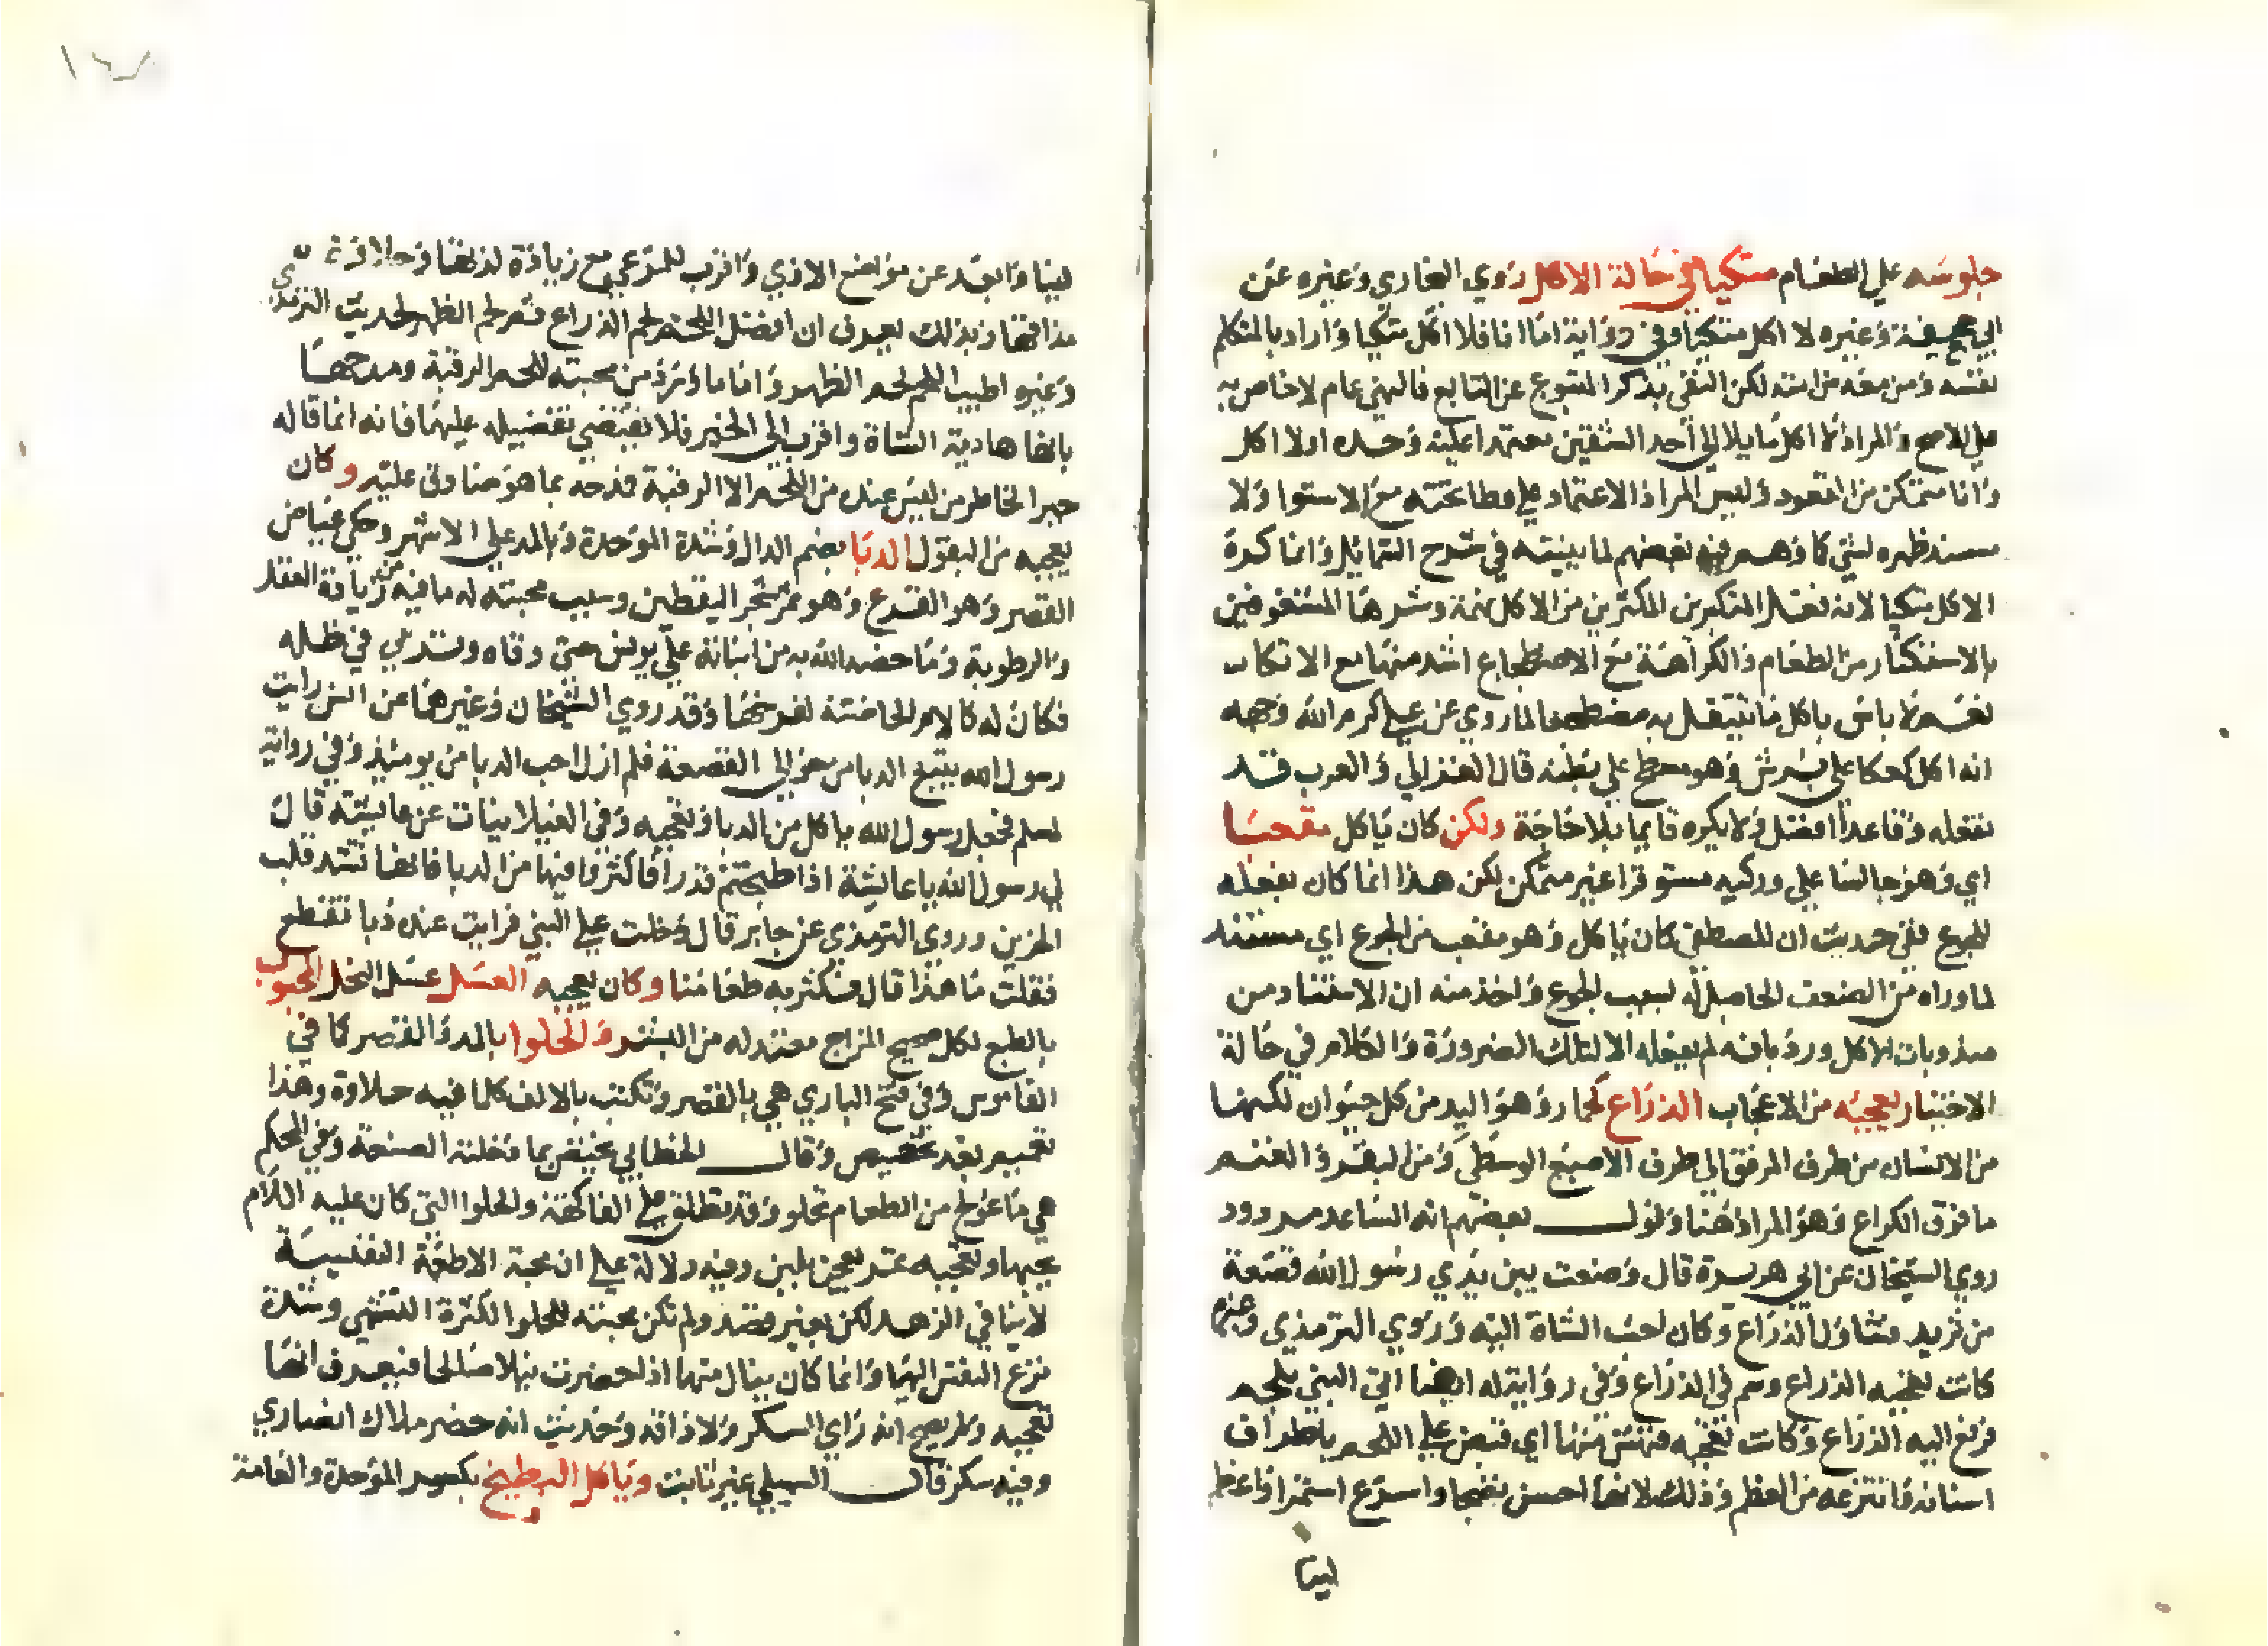 جلوسه علي الطعام متكيا في حالة الاكل روي البخاري وغيره عن
ابي جحيفة وغيره لا اكل متكيا وفي رواية اما انا فلا اكل متكيا واراد بالمتكلم
نفسه ومن معه من امته لكن اكتفي بذكر المتبوع عن التابع فالنهي عام لا خاص به
علي الاصح والمراد لا اكل مايلا الي احد الشقين معتمدا عليه وحده او لا اكل
وانا متمكن من القعود وليس المراد الاعتماد علي وطا تحته مع الاستوا ولا
مسند ظهره لشي كما وهم فيه بعضهم لما بينته في شرح الشمايل وانما كره
الاكل متكيا لانه فعل المتكبرين المكثرين من الاكل نهمة وشرها المشغوفين
بالاستكثار من الطعام والكراهة مع الاضطجاع اشد منها مع الاتكا
نعم لا باس باكل ما يتنقل به مضطجعا لما روي عن علي كرم الله وجهه
انه اكل كعكا علي برش وهو مضطجع علي بطنه قال الغزالي والعرب قد
تفعله وقاعدا افضل ولا يكره قايما بلا حاجة ولكن كان ياكل مقعيا
اي وهو جالسا علي وركيه مستوفزا غير متمكن لكن هذا انما كان يفعله
للجوع ففي حديث ان المصطفي كان ياكل وهو مقعي من الجوع اي مستند
لما وراه من الضعف الحاصل له بسبب الجوع واخذ منه ان الاستناد من
مندوبات الاكل ورد بانه لم يفعله الا لتلك الضرورة والكلام في حالة
الاختيار يعجبه من الاعجاب الذراع كحمار وهو اليد من كل حيوان لكنها
من الانسان من طرف المرفق الي طرف الاصبع الوسطي ومن البقر والغنم
ما فوق الكراع وهو المراد هنا وقول بعضهم انه الساعد مردود
روي الشيخان عن ابي هريرة قال وضعت بين يدي رسول الله قصعة
من ثريد فتناول الذراع وكان احب الشاة اليه وروي الترمذي وغيره
كانت يعجبه الذراع وسم في الذراع وفي رواية له ايضا اتي النبي بلحم
فرفع اليه الذراع وكانت تعجبه فنهس منها اي قبض علي اللحم باطراف
اسنانه فانتزعه من العظم وذلك لانها احسن نضجا واسرع استمرا واعظم
لينا
لينا وابعد عن موضع الاذي واقرب للمرعي مع زيادة لذتها وحلاوة
مذاقها وبذلك يعرف ان افضل اللحم لحم الذراع ثم لحم الظهر لحديث الترمذي
وغيره اطيب اللحم لحم الظهر واما ما ورد من محبته للحم الرقبة ومدحها
بانها هادية الشاة واقرب الي الخير فلا يقتضي تفضيله عليها فانه انما قاله
جبرا لخاطر من ليس عنده من اللحم الا الرقبة فمدحه بما هو صادق عليه وكان
يعجبه من البقول الدبا بضم الدال وشدة الموحدة وبالمد علي الاشهر وحكي عياض
القصر وهو القرع وهو ثمر شجر اليقطين وسبب محبته له ما فيه من زيادة العقل
والرطوبة وما خصه الله به من انباته علي يونس حتي وقاه وتربي في ظله
فكان له كالام الحاضنة لفرخها وقد روي الشيخان وغيرهما عن انس رايت
رسول الله يتتبع الدبا من حوالي القصعة فلم ازل احب الدبا من يوميذ وفي رواية
لمسلم فجعل رسول الله ياكل من الدبا وتعجبه وفي الغيلانيات عن عايشة قال
لي رسول الله يا عايشة اذا طبختم قدرا فاكثروا فيها من الدبا فانها تشد قلب
الحزين وروي الترمذي عن جابر قال دخلت علي النبي فرايت عنده دبا تقطع
فقلت ما هذا قال نكثر به طعامنا وكان يعجبه العسل عسل النحل المحبوب
بالطبع لكل صحيح المزاج معتدله من البشر والحلوا بالمد والقصر كما في
القاموس وفي فتح الباري هي بالقصر وتكتب بالالف كلما فيه حلاوة وهذا
تعميم بعد تخصيص وقال الخطابي يختص بما دخلته الصنعة وفي المحكم
هي ما عولج من الطعام بحلو وقد تطلق علي الفاكهة والحلوا التي كان عليه السلام
يحبها وتعجبه تمر يعجن بلبن وفيه دلالة علي ان محبة الاطعمة النفيسة
لا ينافي الزهد لكن بغير قصد ولم تكن محبته للحلوا لكثرة التشهي وشدة
نزع النفس اليها وانما كان ينال منها اذا حضرت نيلا صالحا فيعرف انها
تعجبه ولم يصح انه راي السكر ولا ذاقه وحديث انه حضر ملاك انصاري
وفيه سكر قال السهيلي غير ثابت وياكل البطيخ بكسر الموحدة والعامة